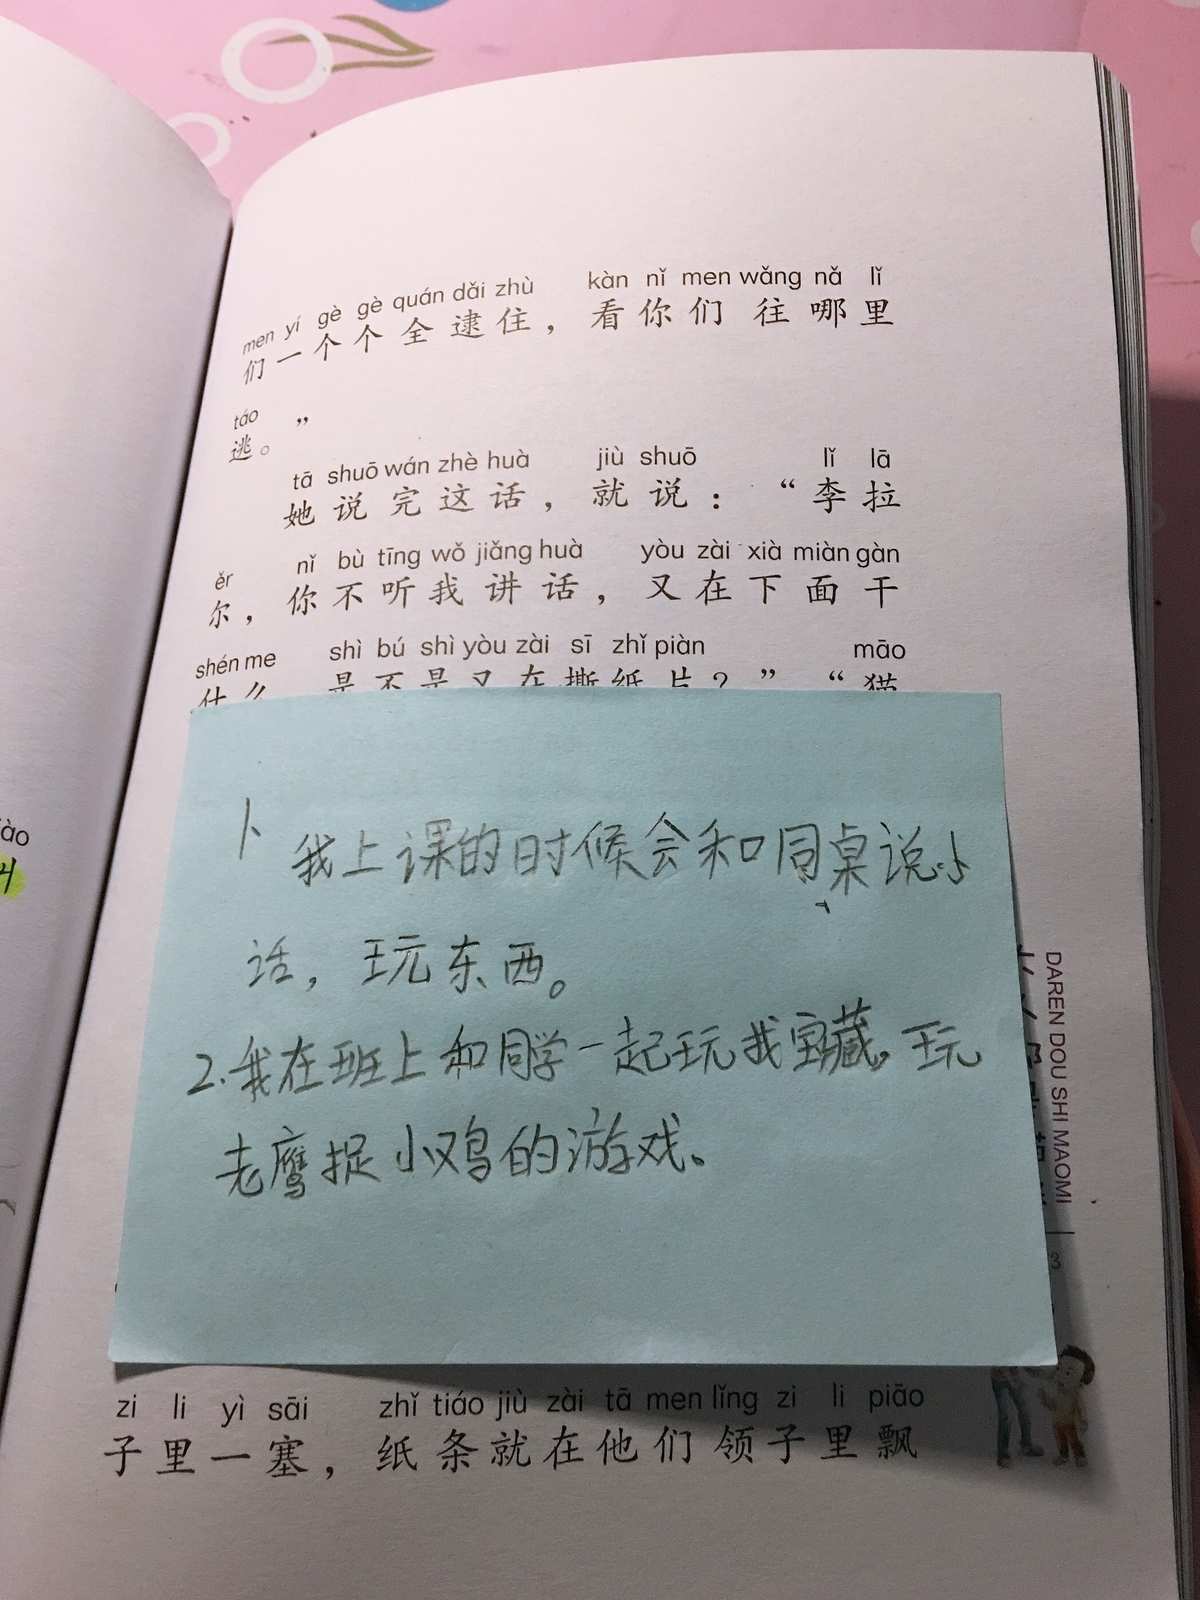 men yí gè gè quán dǎi zhù kàn nǐ men wǎng nǎ lǐ
们一个个全逮住，看你们往哪里
táo
逃。”
tā shuō wán zhè huà jiù shuō lǐ lā
她说完这话，就说：“李拉
ěr nǐ bù tīng wǒ jiǎng huà yòu zài xià miàn gàn
尔，你不听我讲话，又在下面干
shén me shì bú shì yòu zài sī zhǐ piàn māo
什么，是不是又在撕纸片？”“猫
1. 我上课的时候会和同桌说小
话，玩东西。
2.我在班上和同学一起玩我宝藏，玩
老鹰捉小鸡的游戏。
DAREN DOU SHI MAOMI
3
zi li yì sāi zhǐ tiáo jiù zài tā men lǐng zi li piāo
子里一塞，纸条就在他们领子里飘